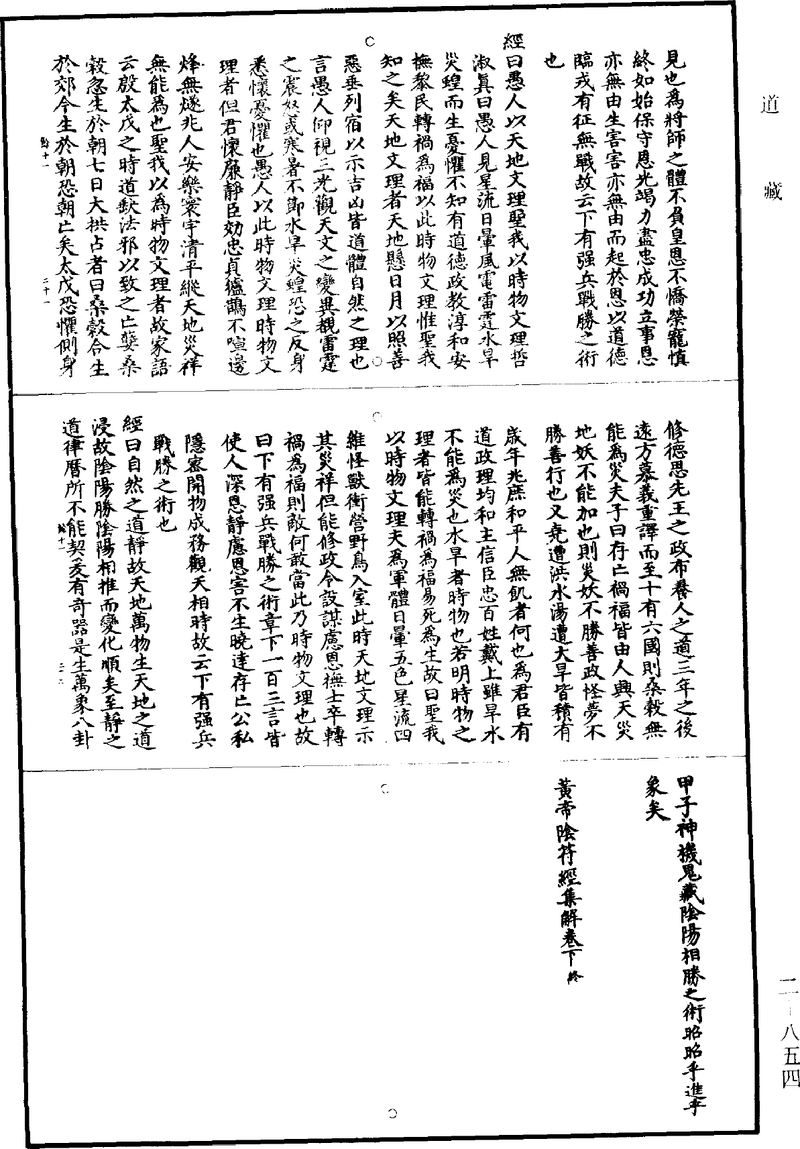 道藏
見也為將師之體不負皇恩不憍榮寵慎
終如始保守恩光竭力盡忠成功立事恩
亦無由生害害亦無由而起於恩以道德
臨戎有征無戰故云下有强兵戰勝之術
也
經曰愚人以天地文理聖我以時物文理哲
淑真曰愚人見星流日暈風電雷霆水旱
災蝗而生憂懼不知有道德政教淳和安
撫黎民轉禍為福以此時物文理惟聖我
知之矣天地文理者天地懸日月以照善
惡垂列宿以示吉凶皆道體自然之理也
言愚人仰視三光觀天文之變異覩雷霆
之震怒或寒暑不節水旱災蝗恐之反身
悉懷憂懼也愚人以此時物文理時物文
理者但君懷廉靜臣効忠貞貛鵲不喧邊
烽無燧兆人安樂寰宇清平縱天地災祥
無能為也聖我以為時物文理者故家語
云殷太戊之時道缺法邪以致之亡孽桑
穀忽生於朝七日大拱占者曰桑穀合生
於郊今生於朝恐朝亡矣太戊恐懼側身
修德思先王之政布養人之道三年之後
遠方慕義重譯而至十有六國則桑穀無
能為災夫子曰存亡禍福皆由人興天災
地妖不能加也則災妖不勝善政怪夢不
勝善行也又堯遭洪水湯遭大旱皆積有
歲年兆庶和平人無飢者何也為君臣有
道政理均和主信臣忠百姓戴上雖旱水
不能為災也水旱者時物也若明時物之
理者皆能轉禍為福易死為生故曰聖我
以時物文理夫為軍體日暈五色星流四
維怪獸衝營野鳥入室此時天地文理示
其災祥但能修政令設謀慮恩撫士卒轉
禍為福則敵何敢當此乃時物文理也故
曰下有强兵戰勝之術章下一百三言皆
使人深思靜慮恩害不生曉達存亡公私
隱密開物成務觀天相時故云下有强兵
戰勝之術也
經曰自然之道靜故天地萬物生天地之道
浸故陰陽勝陰陽相推而變化順矣至靜之
道律曆所不能契爰有奇器是生萬象八卦
甲子神機鬼藏陰陽相勝之術昭昭乎進乎
象矣
黃帝陰符經集解卷下終
二—八五四